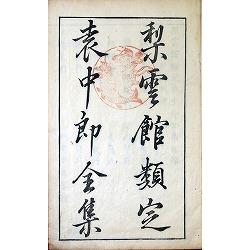 梨雲館類定
袁中郎全集